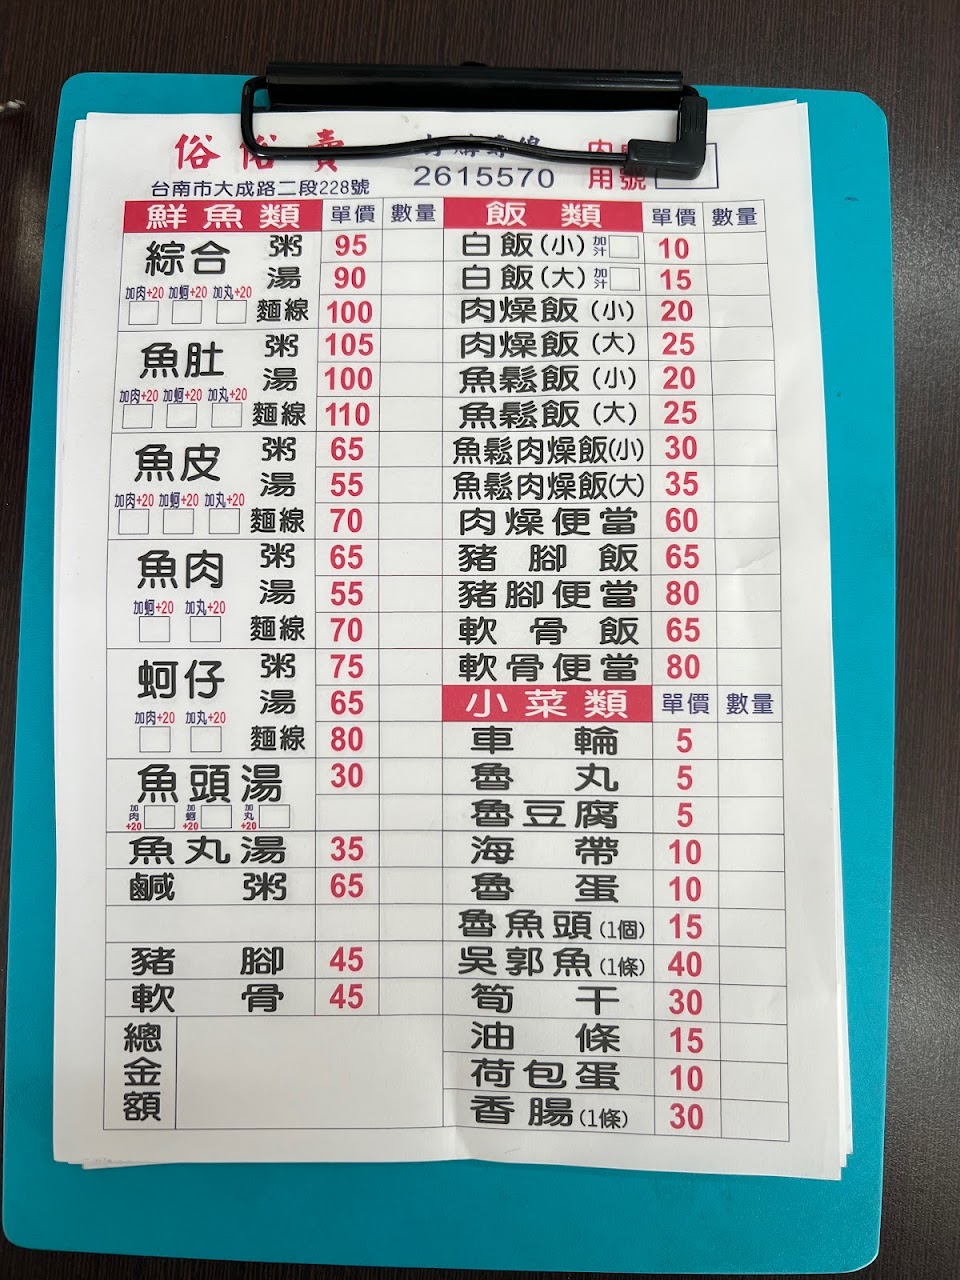 俗俗賣
2615570
用號
台南市大成路二段228號
鮮魚類 單價 數量
綜合 粥 95
湯 90
加肉+20 加蚵+20 加丸+20
麵線 100
魚肚 粥 105
湯 100
加肉+20 加蚵+20 加丸+20
麵線 110
魚皮 粥 65
湯 55
加肉+20 加蚵+20 加丸+20
麵線 70
魚肉 粥 65
湯 55
加蚵+20 加丸+20
麵線 70
蚵仔 粥 75
湯 65
加肉+20 加丸+20
麵線 80
魚頭湯 30
加肉+20 加蚵+20 加丸+20
魚丸湯 35
鹹粥 65
豬腳 45
軟骨 45
總金額
飯類 單價 數量
白飯(小) 加汁 10
白飯(大) 加汁 15
肉燥飯(小) 20
肉燥飯(大) 25
魚鬆飯(小) 20
魚鬆飯(大) 25
魚鬆肉燥飯(小) 30
魚鬆肉燥飯(大) 35
肉燥便當 60
豬腳飯 65
豬腳便當 80
軟骨飯 65
軟骨便當 80
小菜類 單價 數量
車輪 5
魯丸 5
魯豆腐 5
海帶 10
魯蛋 10
魯魚頭(1個) 15
吳郭魚(1條) 40
筍干 30
油條 15
荷包蛋 10
香腸(1條) 30